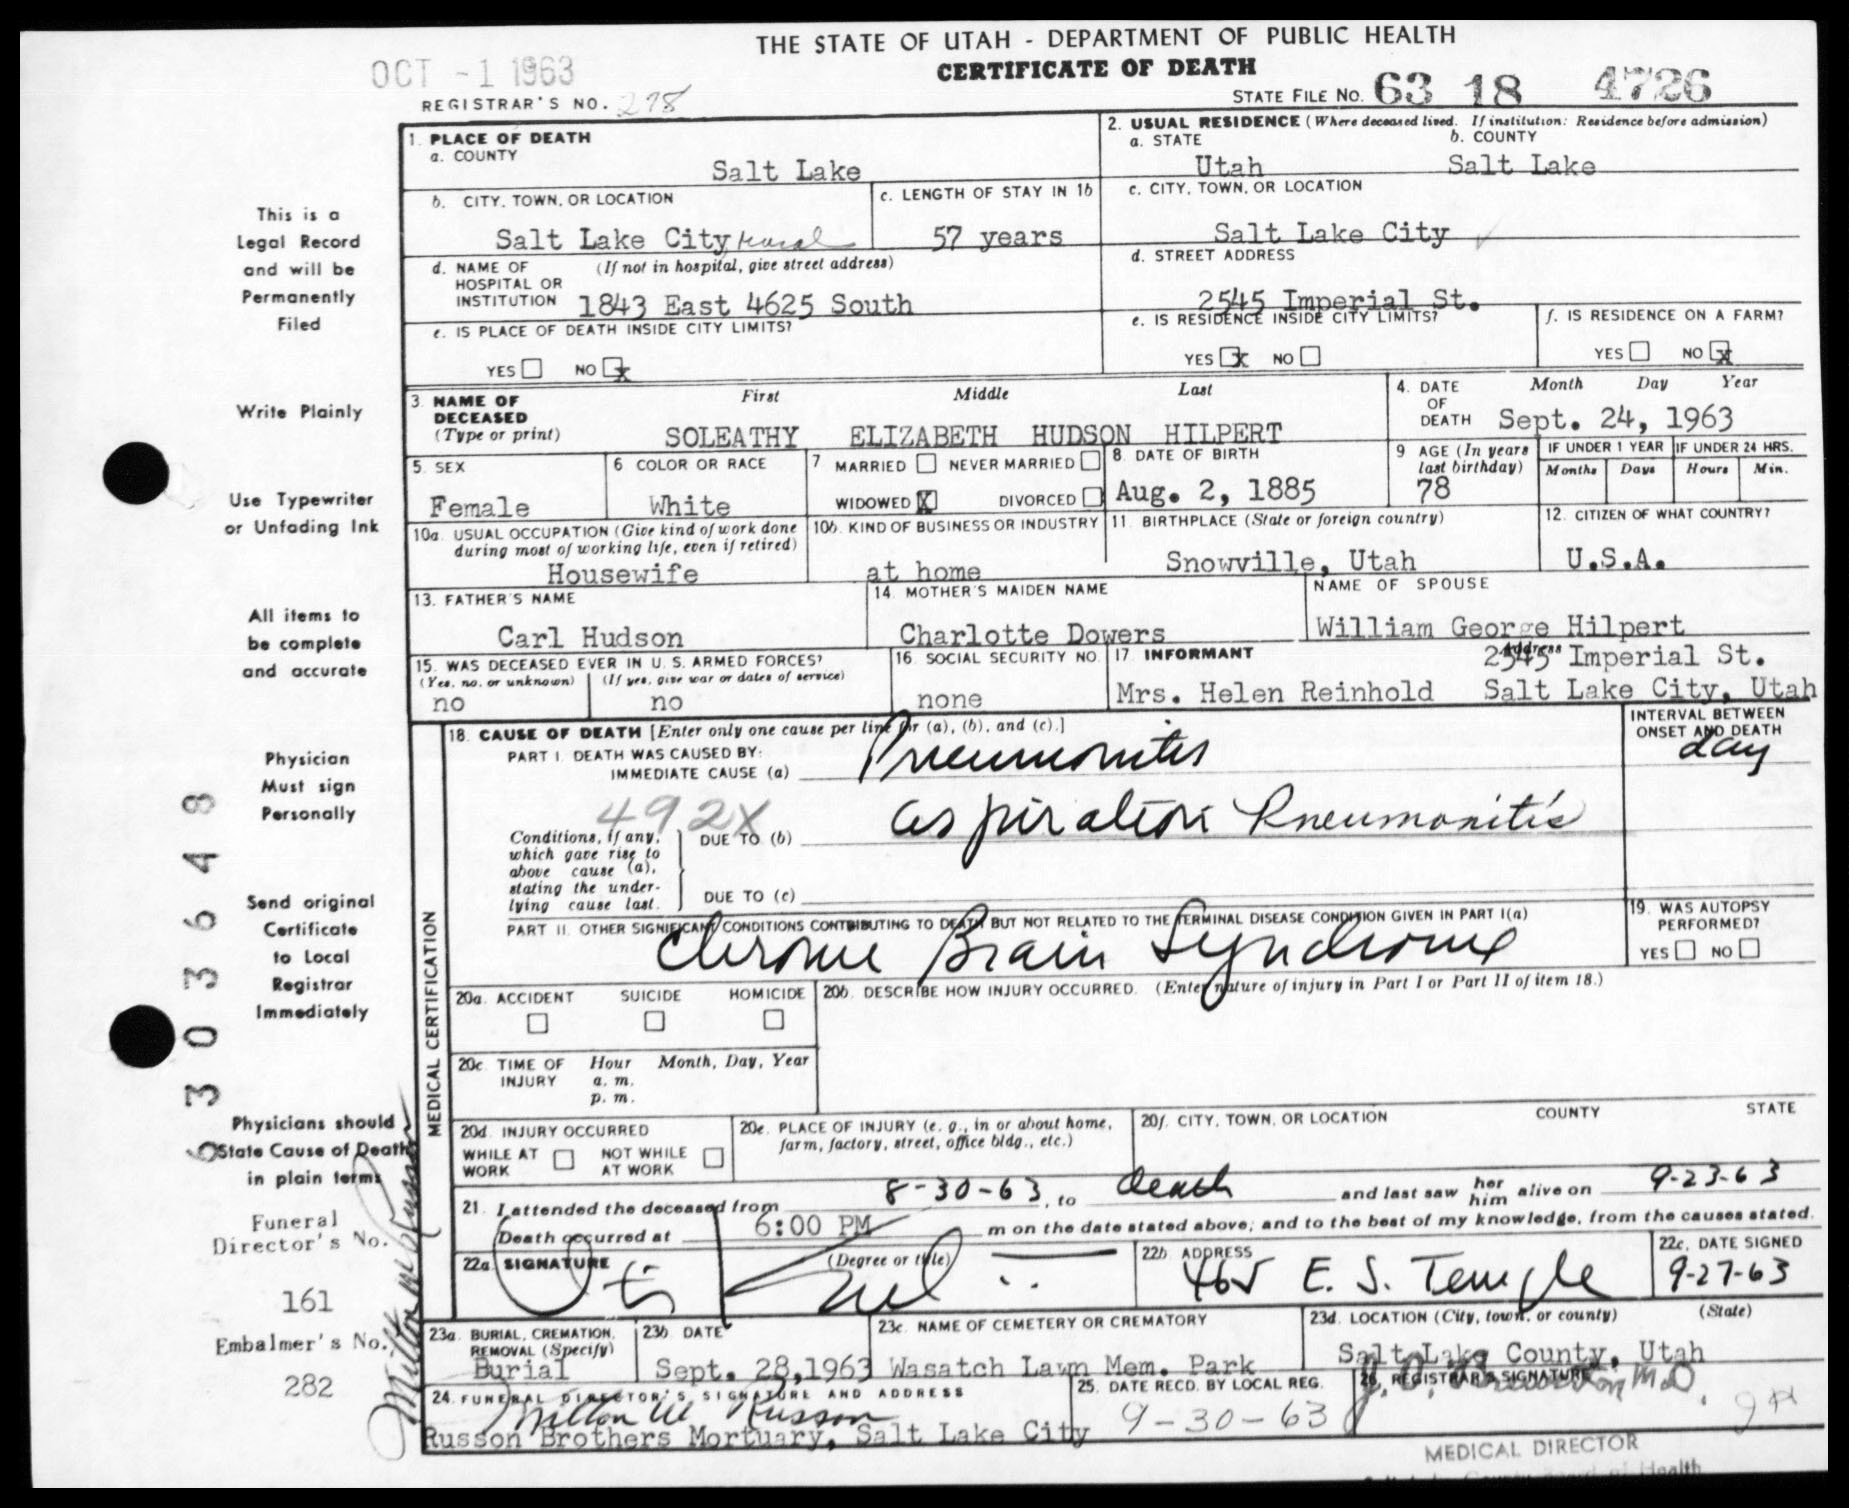 THE STATE OF UTAH - DEPARTMENT OF PUBLIC HEALTH
OCT -1 1963
CERTIFICATE OF DEATH
REGISTRAR'S NO. 278
STATE FILE NO. 63 18 4726
1. PLACE OF DEATH
a. COUNTY
Salt Lake
2. USUAL RESIDENCE (Where deceased lived. If institution: Residence before admission)
a. STATE b. COUNTY
Utah Salt Lake
b. CITY, TOWN, OR LOCATION
Salt Lake City rural
c. LENGTH OF STAY IN 1b
57 years
c. CITY, TOWN, OR LOCATION
Salt Lake City
d. NAME OF (If not in hospital, give street address)
HOSPITAL OR
INSTITUTION 1843 East 4625 South
d. STREET ADDRESS
2545 Imperial St.
e. IS PLACE OF DEATH INSIDE CITY LIMITS?
YES NO X
e. IS RESIDENCE INSIDE CITY LIMITS?
YES X NO
f. IS RESIDENCE ON A FARM?
YES NO X
3. NAME OF
DECEASED
(Type or print)
First Middle Last
SOLEATHY ELIZABETH HUDSON HILPERT
4. DATE
OF
DEATH
Month Day Year
Sept. 24, 1963
5. SEX
Female
6. COLOR OR RACE
White
7. MARRIED NEVER MARRIED
WIDOWED X DIVORCED
8. DATE OF BIRTH
Aug. 2, 1885
9. AGE (In years
last birthday)
78
IF UNDER 1 YEAR
Months Days
IF UNDER 24 HRS.
Hours Min.
10a. USUAL OCCUPATION (Give kind of work done
during most of working life, even if retired)
Housewife
10b. KIND OF BUSINESS OR INDUSTRY
at home
11. BIRTHPLACE (State or foreign country)
Snowville, Utah
12. CITIZEN OF WHAT COUNTRY?
U.S.A.
13. FATHER'S NAME
Carl Hudson
14. MOTHER'S MAIDEN NAME
Charlotte Dowers
NAME OF SPOUSE
William George Hilpert
15. WAS DECEASED EVER IN U. S. ARMED FORCES?
(Yes, no, or unknown) (If yes, give war or dates of service)
no no
16. SOCIAL SECURITY NO.
none
17. INFORMANT Address
2545 Imperial St.
Mrs. Helen Reinhold Salt Lake City, Utah
18. CAUSE OF DEATH [Enter only one cause per line for (a), (b), and (c).]
PART I. DEATH WAS CAUSED BY:
IMMEDIATE CAUSE (a) Pneumonitis
INTERVAL BETWEEN
ONSET AND DEATH
day
492X
Conditions, if any,
which gave rise to
above cause (a),
stating the under-
lying cause last.
DUE TO (b) aspiration Pneumonitis
DUE TO (c)
PART II. OTHER SIGNIFICANT CONDITIONS CONTRIBUTING TO DEATH BUT NOT RELATED TO THE TERMINAL DISEASE CONDITION GIVEN IN PART I(a)
Chronic Brain Syndrome
19. WAS AUTOPSY
PERFORMED?
YES NO
MEDICAL CERTIFICATION
20a. ACCIDENT SUICIDE HOMICIDE
20b. DESCRIBE HOW INJURY OCCURRED. (Enter nature of injury in Part I or Part II of item 18.)
20c. TIME OF
INJURY
Hour Month, Day, Year
a. m.
p. m.
20d. INJURY OCCURRED
WHILE AT
WORK
NOT WHILE
AT WORK
20e. PLACE OF INJURY (e. g., in or about home,
farm, factory, street, office bldg., etc.)
20f. CITY, TOWN, OR LOCATION COUNTY STATE
21. I attended the deceased from 8-30-63, to death and last saw her him alive on 9-23-63
Death occurred at 6:00 PM m on the date stated above; and to the best of my knowledge, from the causes stated.
22a. SIGNATURE (Degree or title)
22b. ADDRESS
465 E. S. Temple
22c. DATE SIGNED
9-27-63
23a. BURIAL, CREMATION,
REMOVAL (Specify)
Burial
23b. DATE
Sept. 28,1963
23c. NAME OF CEMETERY OR CREMATORY
Wasatch Lawn Mem. Park
23d. LOCATION (City, town, or county) (State)
Salt Lake County, Utah
24. FUNERAL DIRECTOR'S SIGNATURE AND ADDRESS
Milton W Russon
Russon Brothers Mortuary, Salt Lake City
25. DATE RECD. BY LOCAL REG.
9-30-63
26. REGISTRAR'S SIGNATURE
M.D.
MEDICAL DIRECTOR
Health
This is a
Legal Record
and will be
Permanently
Filed
Write Plainly
Use Typewriter
or Unfading Ink
All items to
be complete
and accurate
Physician
Must sign
Personally
Send original
Certificate
to Local
Registrar
Immediately
Physicians should
State Cause of Death
in plain terms
Funeral
Director's No.
161
Embalmer's No.
282
Milton W Russon
6303648